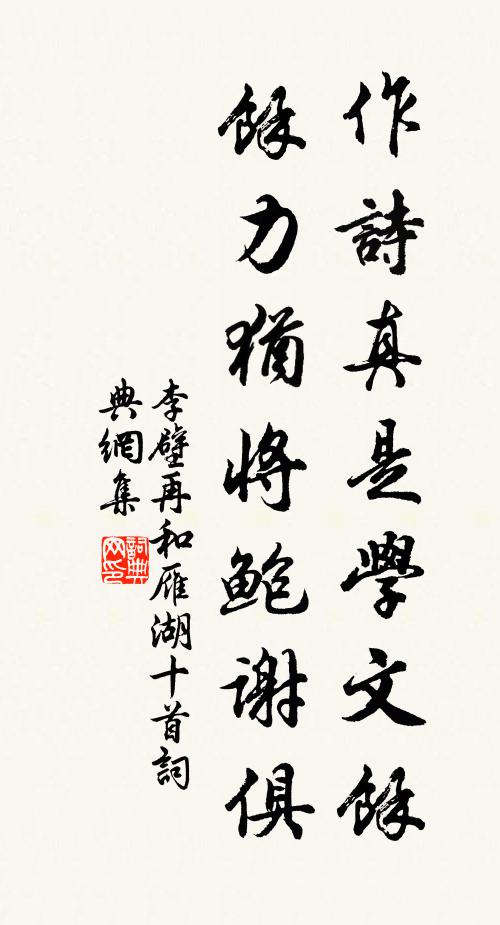 作詩真是學文餘
餘力猶將鮑謝俱
李壁再和雁湖十首詞
典網集
詞典
网印